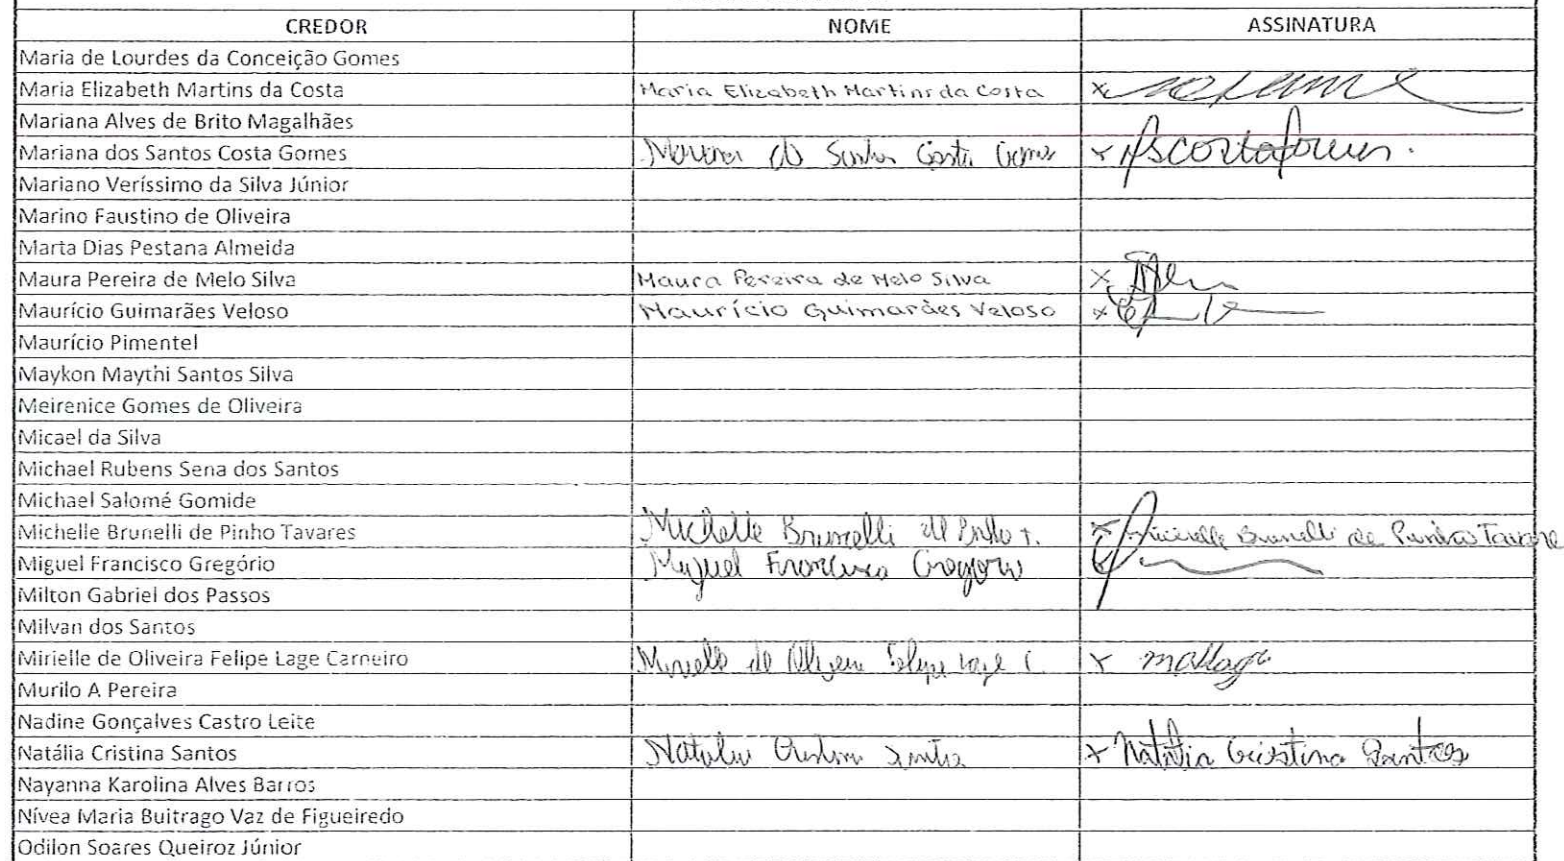 CREDOR NOME ASSINATURA
Maria de Lourdes da Conceição Gomes
Maria Elizabeth Martins da Costa Maria Elizabeth Martins da Costa x
Mariana Alves de Brito Magalhães
Mariana dos Santos Costa Gomes Mariana do Santos Costa Gomes x
Mariano Veríssimo da Silva Júnior
Marino Faustino de Oliveira
Marta Dias Pestana Almeida
Maura Pereira de Melo Silva Maura Pereira de Melo Silva x
Maurício Guimarães Veloso Maurício Guimarães Veloso x
Maurício Pimentel
Maykon Maythi Santos Silva
Meirenice Gomes de Oliveira
Micael da Silva
Michael Rubens Sena dos Santos
Michael Salomé Gomide
Michelle Brunelli de Pinho Tavares Michelle Brunelli de Pinho T. x Michelle Brunelli de Pinho Tavare
Miguel Francisco Gregório Miguel Francisco Gregorio x
Milton Gabriel dos Passos
Milvan dos Santos
Mirielle de Oliveira Felipe Lage Carneiro Mirielle de Oliveira Felipe Lage C. x
Murilo A Pereira
Nadine Gonçalves Castro Leite
Natália Cristina Santos Natalia Cristina Santos x Natália Cristina Santos
Nayanna Karolina Alves Barros
Nívea Maria Buitrago Vaz de Figueiredo
Odilon Soares Queiroz Júnior